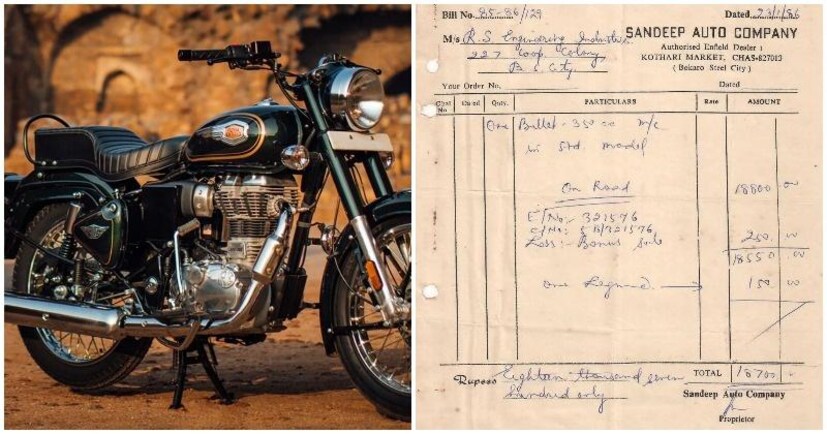 Bill No. 85-86/129 Dated 23/1/86
M/s R.S. Engineering Industries
227 Coop. Colony
B.S. City.
SANDEEP AUTO COMPANY
Authorised Enfield Dealer :
KOTHARI MARKET, CHAS-827013
( Bokaro Steel City )
Your Order No. Dated
No. Qnty. PARTICULARS Rate AMOUNT
One Bullet - 350 cc m/c
in Std. model
On Road 18800 00
E/No:- 321576
C/No: 5B/321576
Less :- Bonus 250. 00
18550 00
One Legguard → 150 00
TOTAL 18700
Rupees Eighteen thousand seven
hundred only
Sandeep Auto Company
Proprietor